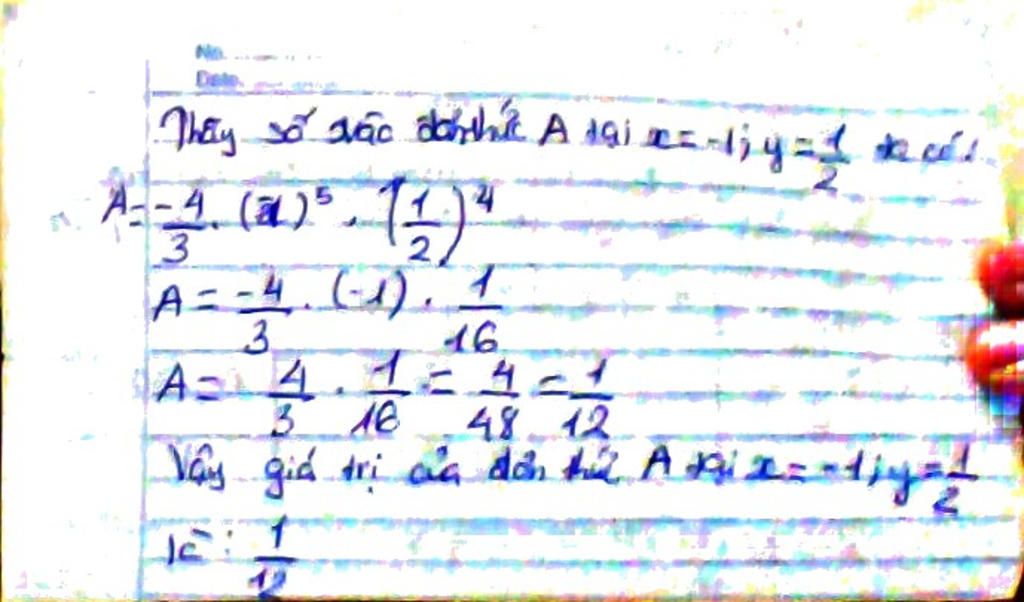 No.
Date
Thay số vào đơn thức A tại x = -1; y = 1/2 ta có:
A = -4/3 . (-1)^5 . (1/2)^4
A = -4/3 . (-1) . 1/16
A = 4/3 . 1/16 = 4/48 = 1/12
Vậy giá trị của đơn thức A tại x = -1; y = 1/2
là: 1/12